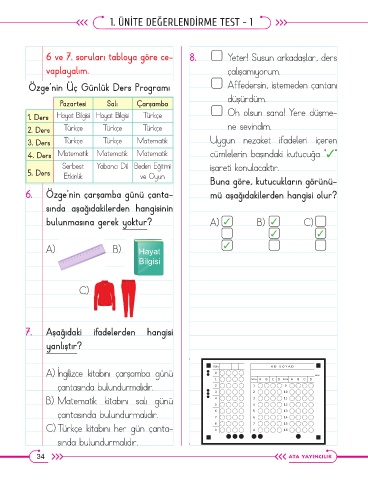 1. ÜNİTE DEĞERLENDİRME TEST - 1
6 ve 7. soruları tabloya göre ce-
vaplayalım.
Özge'nin Üç Günlük Ders Programı
Pazartesi Salı Çarşamba
1. Ders Hayat Bilgisi Hayat Bilgisi Türkçe
2. Ders Türkçe Türkçe Türkçe
3. Ders Türkçe Türkçe Matematik
4. Ders Matematik Matematik Matematik
5. Ders Serbest Etkinlik Yabancı Dil Beden Eğitimi ve Oyun
6. Özge'nin çarşamba günü çanta-
sında aşağıdakilerden hangisinin
bulunmasına gerek yoktur?
A) B) Hayat
Bilgisi
C)
7. Aşağıdaki ifadelerden hangisi
yanlıştır?
A) İngilizce kitabını çarşamba günü
çantasında bulundurmalıdır.
B) Matematik kitabını salı günü
çantasında bulundurmalıdır.
C) Türkçe kitabını her gün çanta-
sında bulundurmalıdır.
8. Yeter! Susun arkadaşlar, ders
çalışamıyorum.
Affedersin, istemeden çantanı
düşürdüm.
Oh olsun sana! Yere düşme-
ne sevindim.
Uygun nezaket ifadeleri içeren
cümlelerin başındaki kutucuğa "✓"
işareti konulacaktır.
Buna göre, kutucukların görünü-
mü aşağıdakilerden hangisi olur?
A) ✓ B) ✓ C)
✓ ✓
✓
34
ATA YAYINCILIK